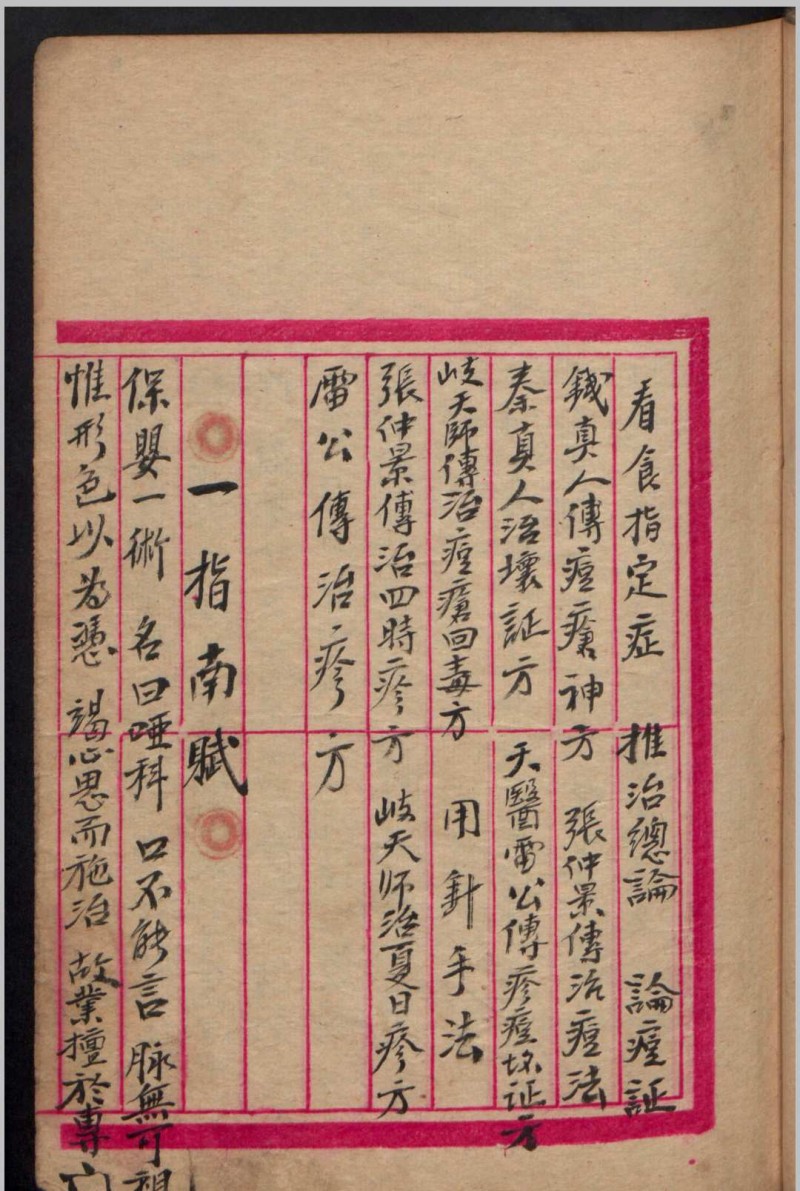 看食指定症 推治總論 論痘証
錢真人傳痘瘡神方 張仲景傳治痘法
秦真人治壞証方 天醫雷公傳疹痘坏证方
岐天師傳治痘瘡回毒方 用針手法
張仲景傳治四時疹方 岐天师治夏日疹方
雷公傳治疹方
一指南賦
保嬰一術 名曰啞科 口不能言 脉無可視
惟形色以為憑 竭心思而施治 故業擅於專